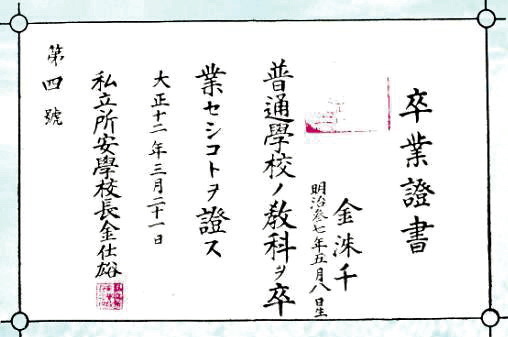 卒業證書
金洙千
明治参七年五月八日生
普通學校ノ教科ヲ卒
業セシコトヲ證ス
大正十二年三月二十一日
私立所安學校長金仕裕
第四號